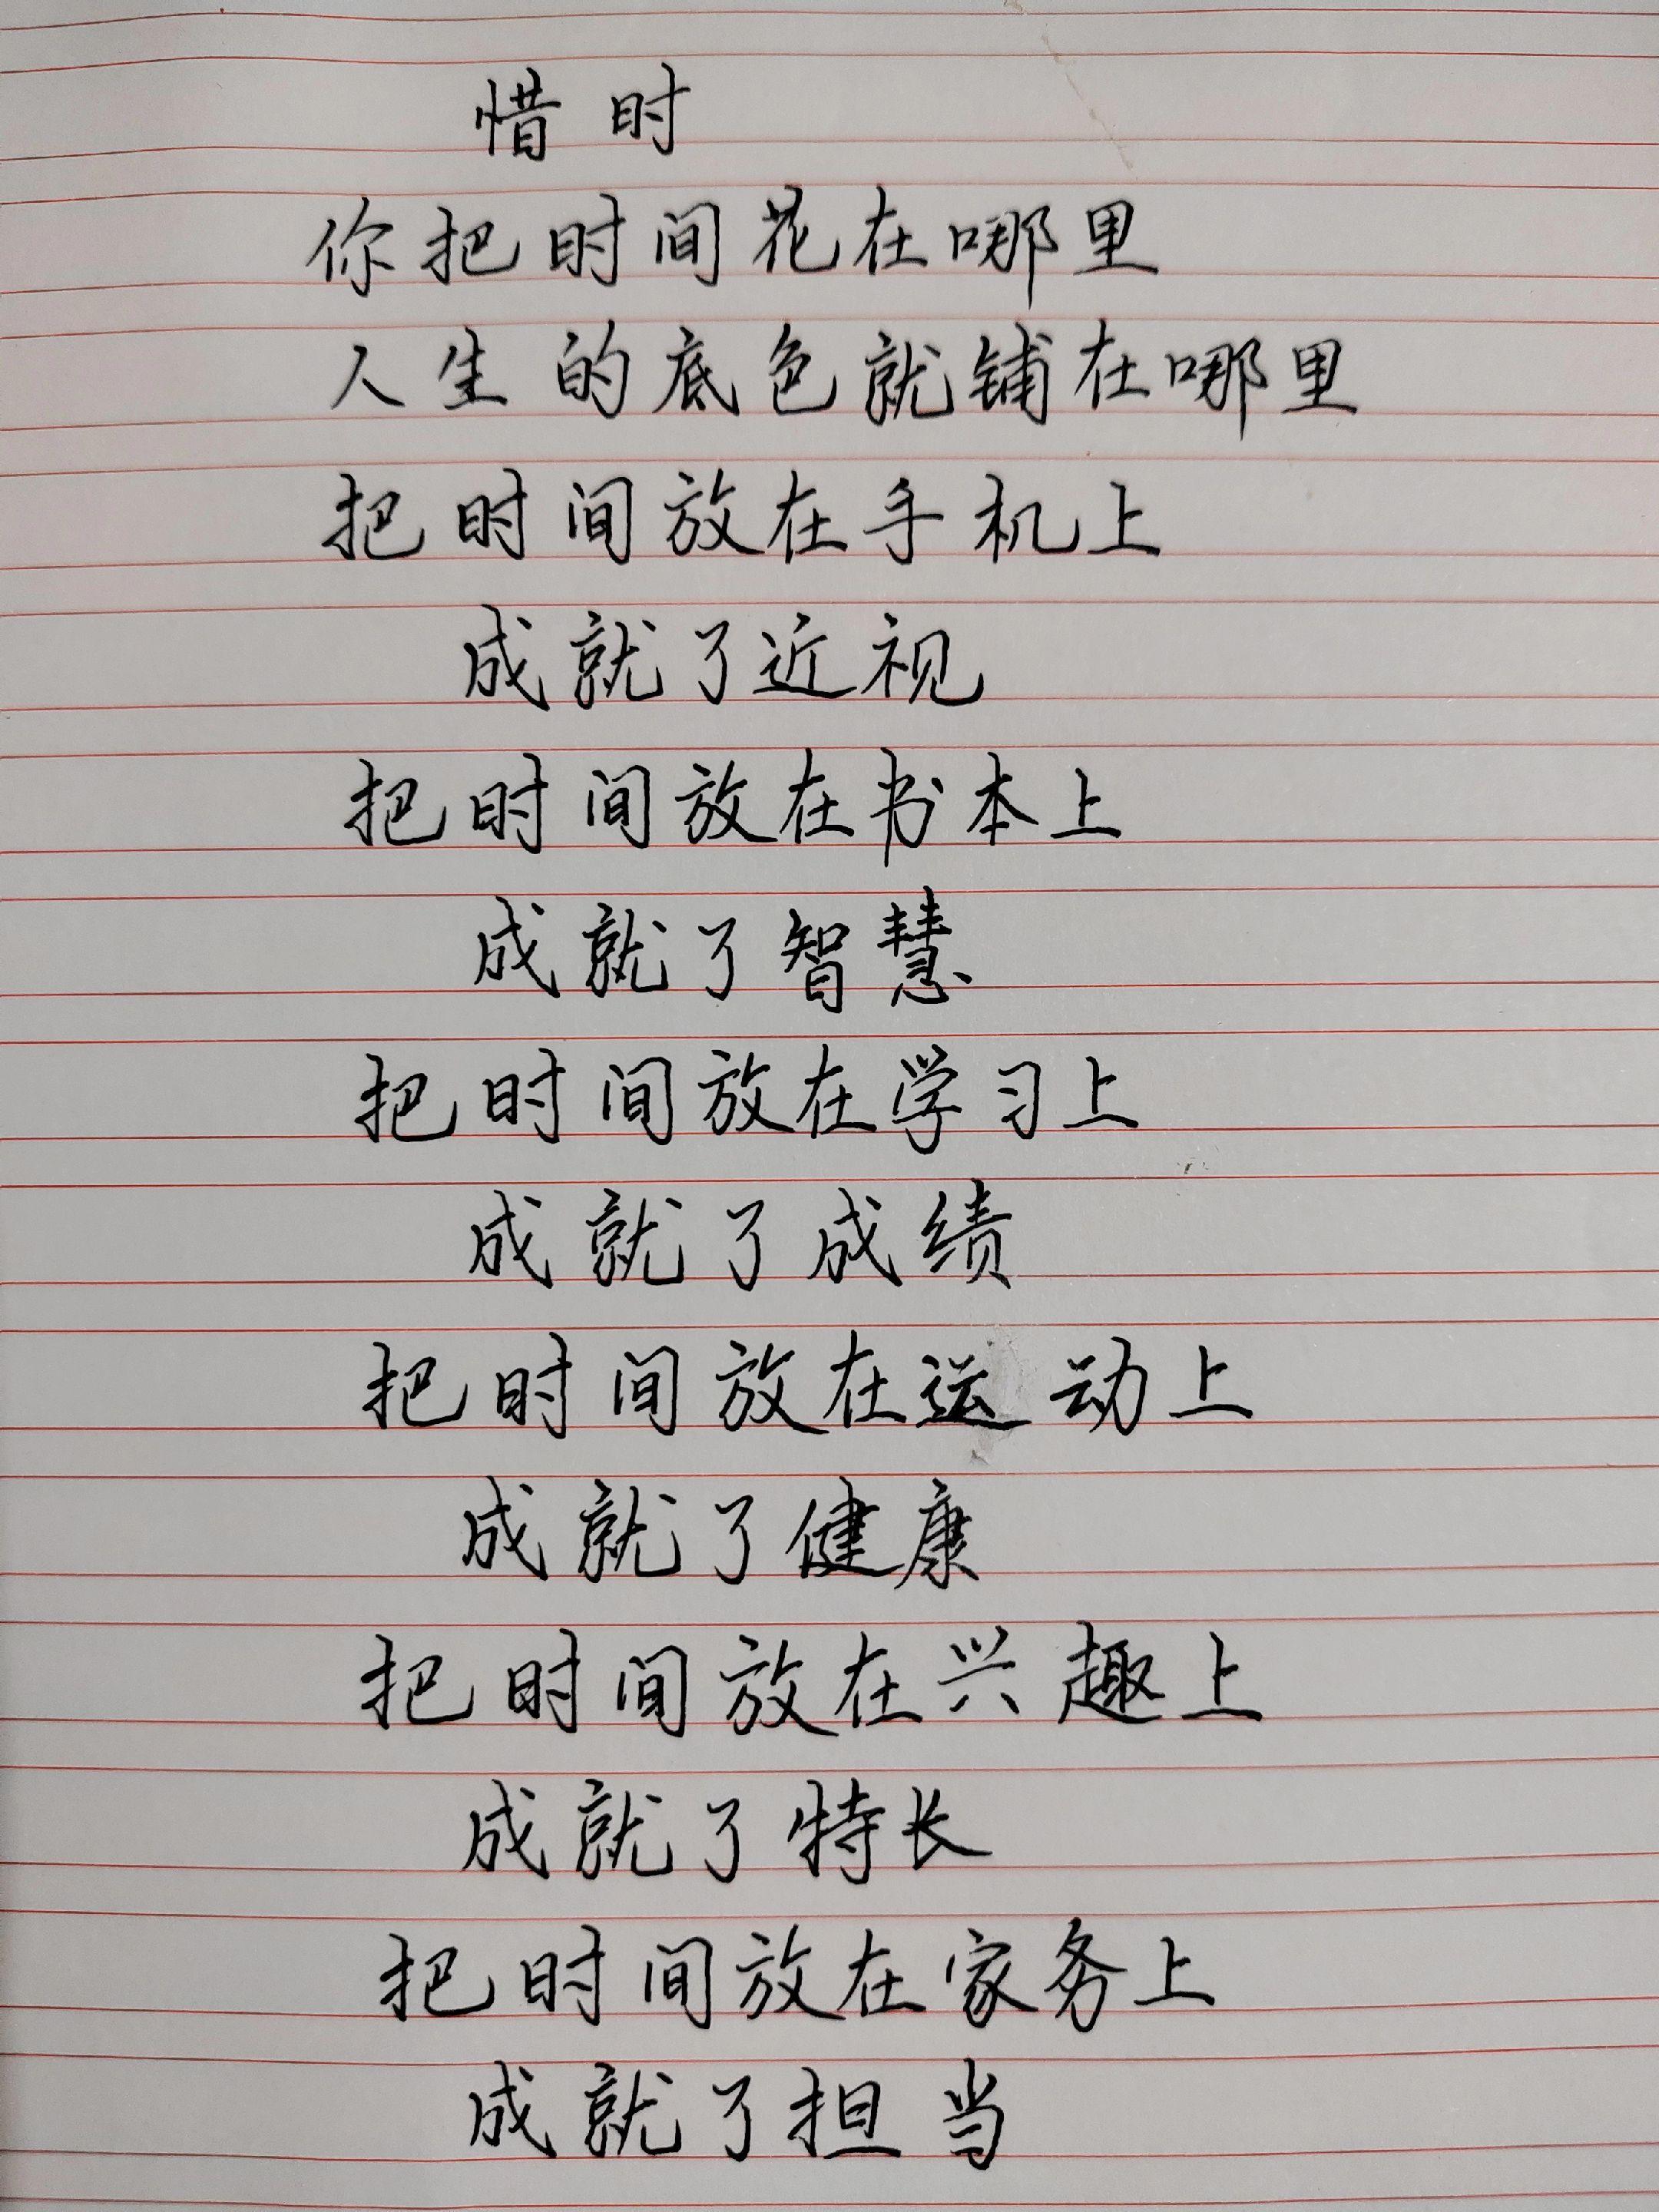 惜时
你把时间花在哪里
人生的底色就铺在哪里
把时间放在手机上
成就了近视
把时间放在书本上
成就了智慧
把时间放在学习上
成就了成绩
把时间放在运动上
成就了健康
把时间放在兴趣上
成就了特长
把时间放在家务上
成就了担当